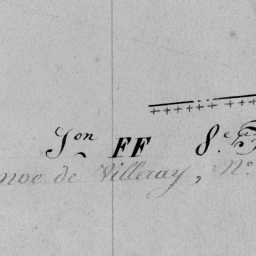 Son FF 8e
de Villeray, No